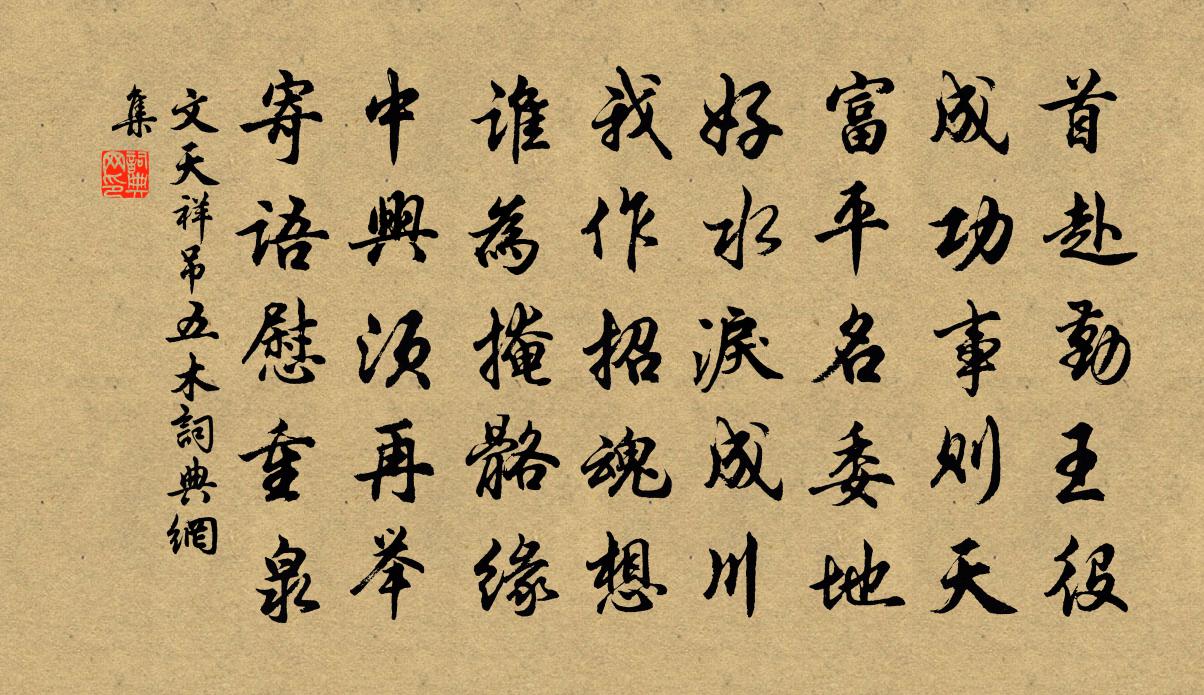 首赴勤王役
成功事则天
富平名委地
好水淚成川
我作招魂想
谁為掩骼缘
中興须再举
寄语慰重泉
文天祥吊五木詞典網
集
詞典网印